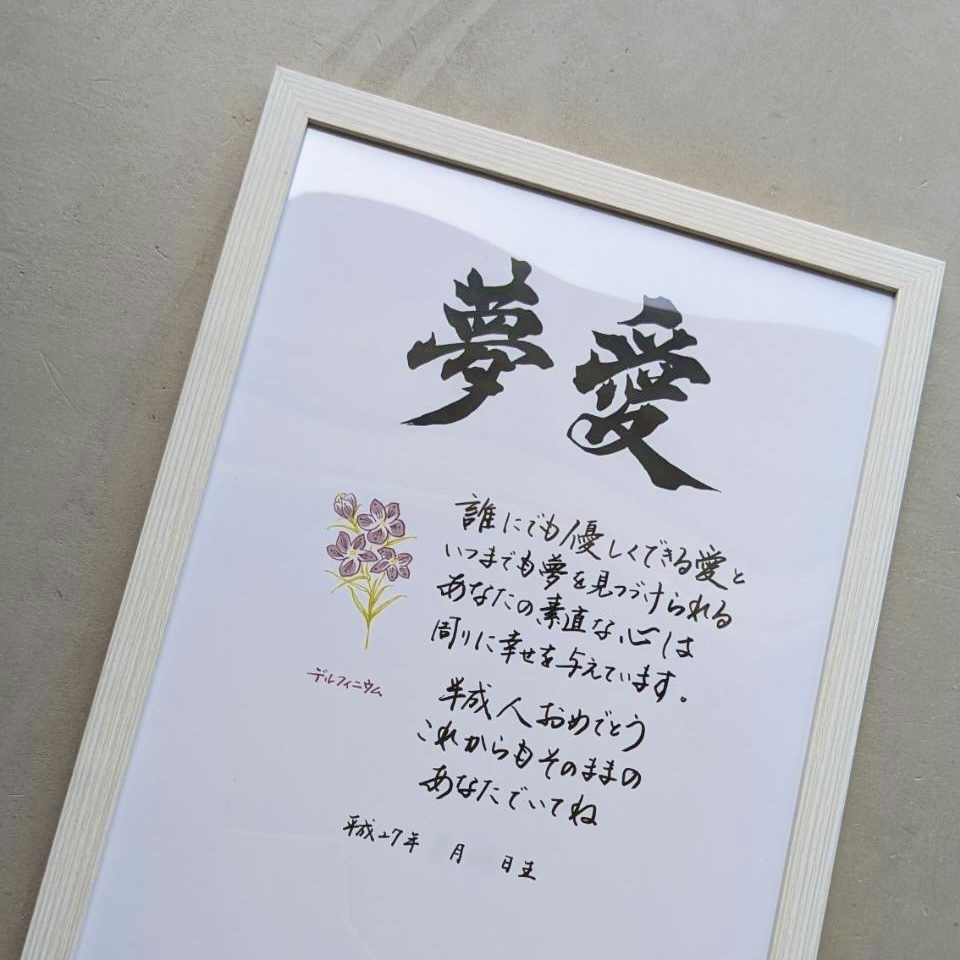 夢愛
誰にでも優しくできる愛と
いつまでも夢を見つづけられる
あなたの素直な心は
周りに幸せを与えています。
デルフィニウム
半成人おめでとう
これからもそのままの
あなたでいてね
平成27年 月 日生